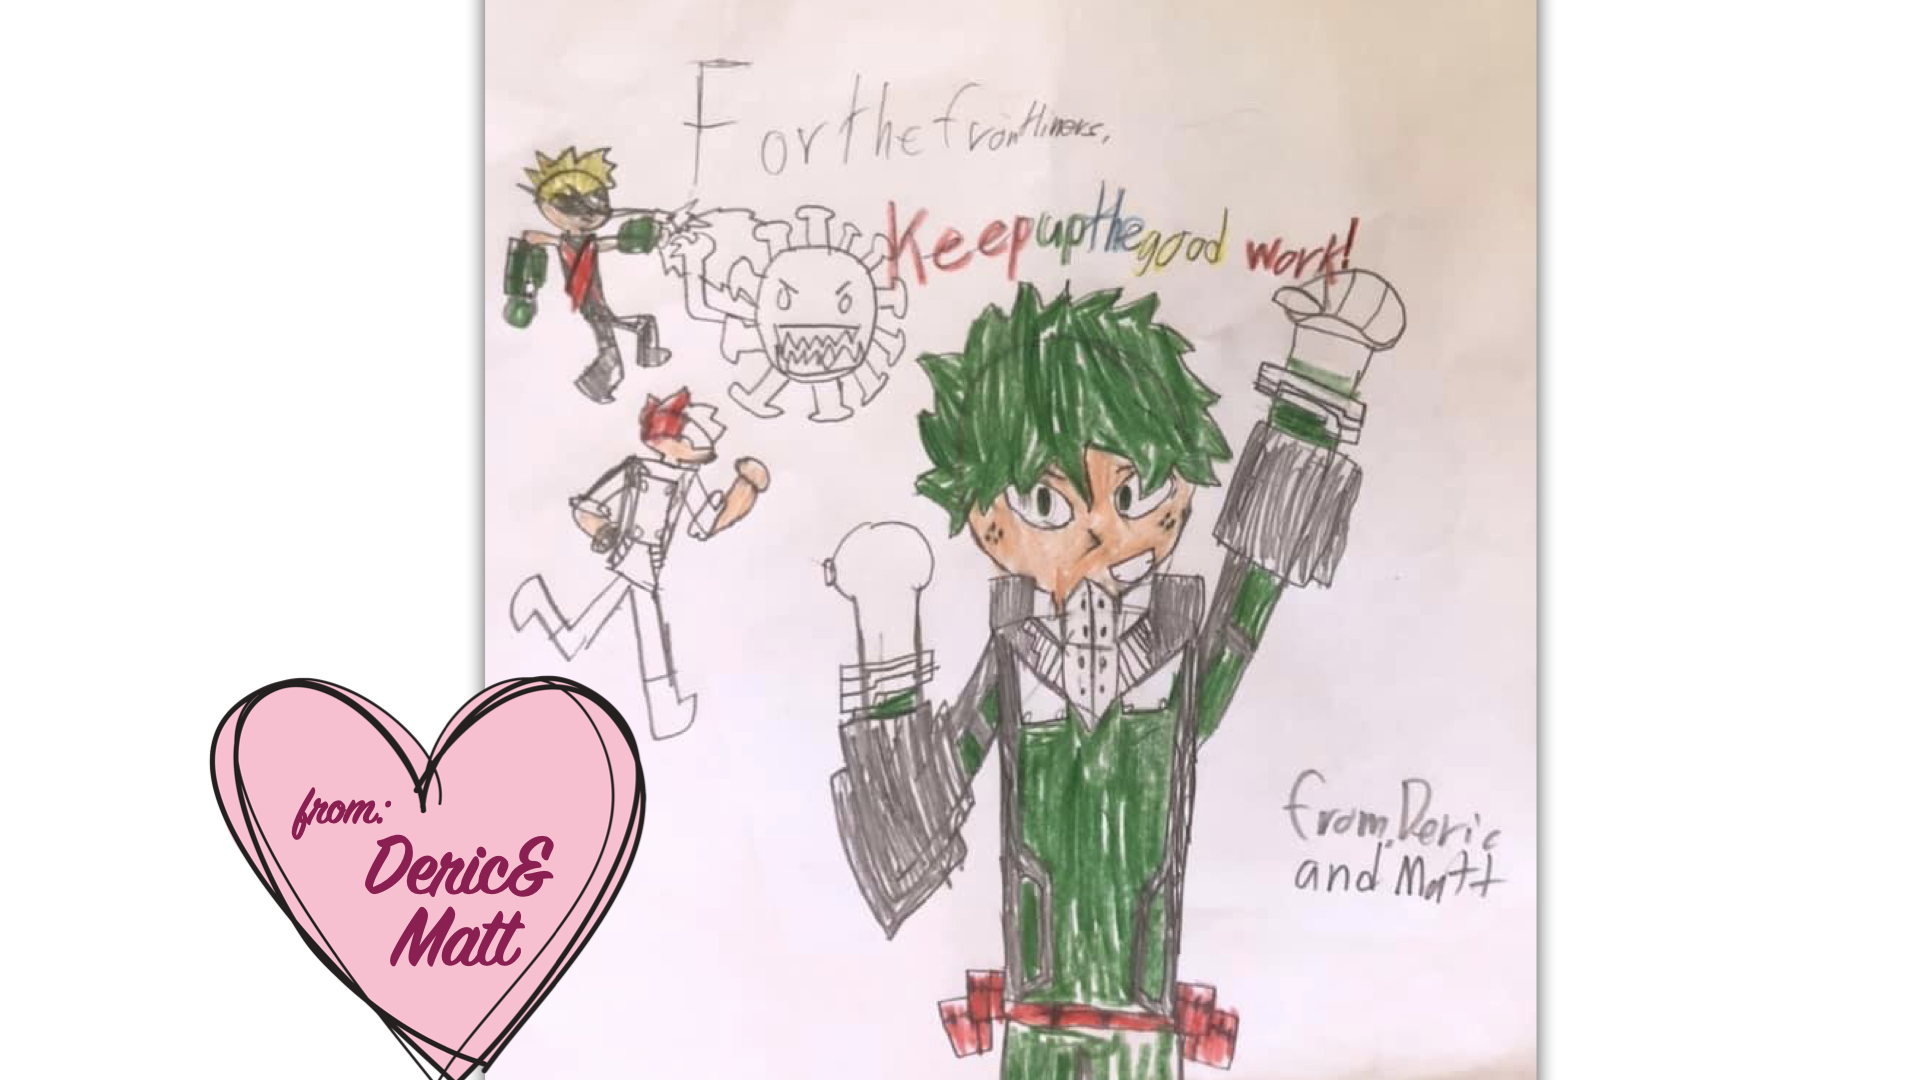 For the frontliners,
Keep up the good work!
from: Deric
and Matt
from:
Deric&
Matt